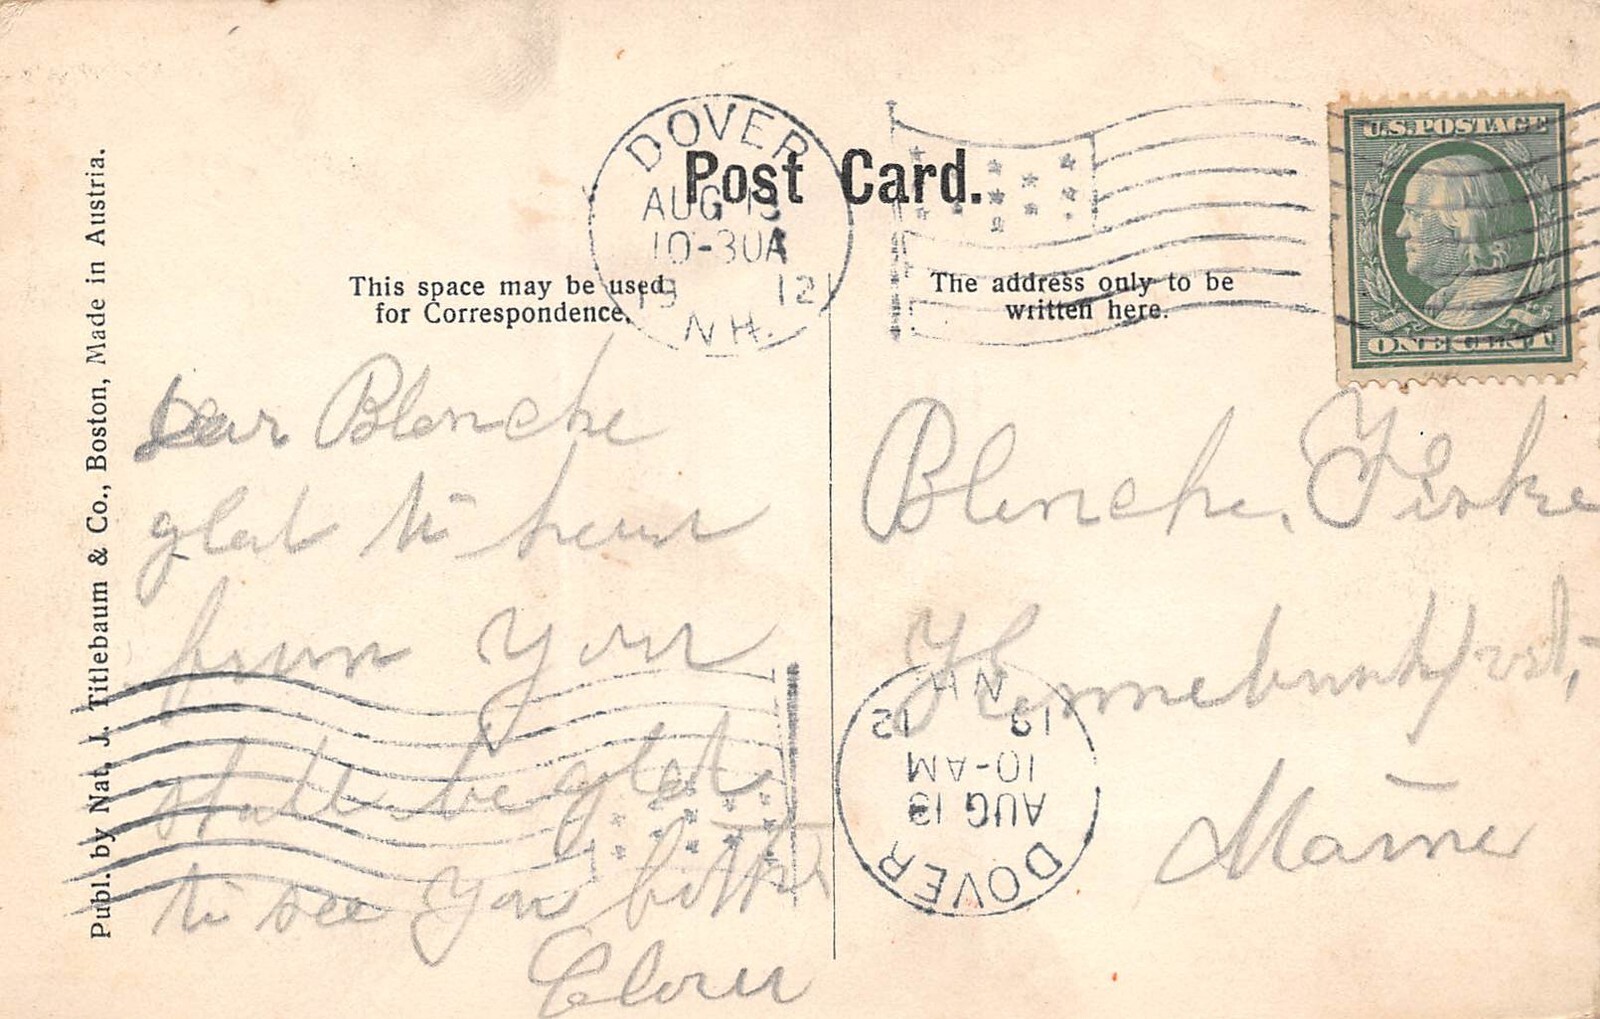 Publ. by Nat. J. Titlebaum & Co., Boston, Made in Austria.
DOVER
AUG 13
10-30A
19 12
N.H.
Post Card.
U.S. POSTAGE
ONE CENT
This space may be used
for Correspondence.
The address only to be
written here.
Dear Blenche
glad to hear
from you
shall be glad
to see you
Blenche
Kennebunkport,
Maine
DOVER
AUG 13
10-AM
19 12
N.H.